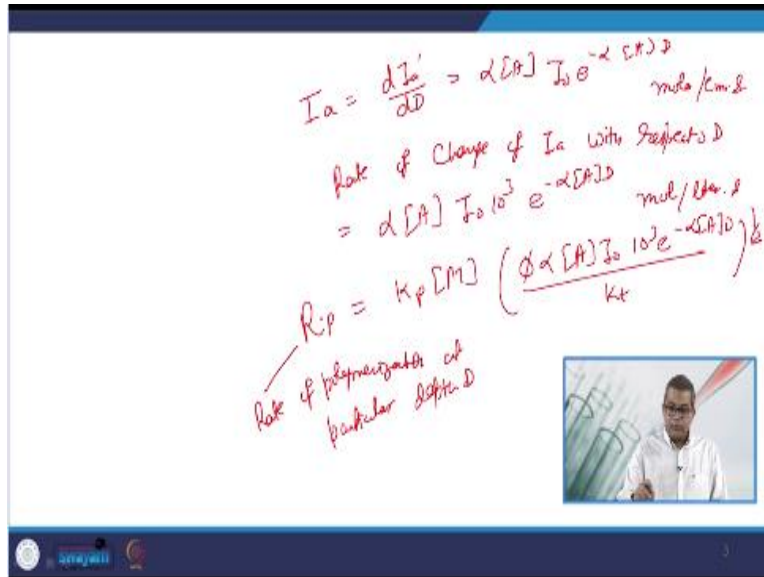 Ia = dIa'/dD = α[A] I₀ e^-α[A]D
mols/cm³.s
Rate of change of Ia with respects D
= α[A] I₀ 10³ e^-α[A]D
mol/liter.s
Rp = Kp [M] (ϕ α [A] I₀ 10³ e^-α[A]D / Kt)^1/2
Rate of polymerization at
particular depth D
swayam
3